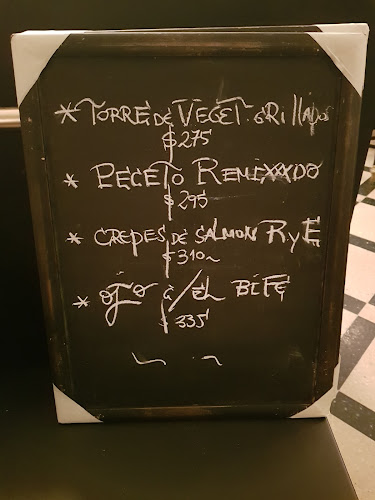 * TORRE DE VEGET. GRILLADOS
$275
* PECETO REMIXXXDO
$295
* CREPES DE SALMON R y E
$310~
* OJO c/ EL BIFE
$335